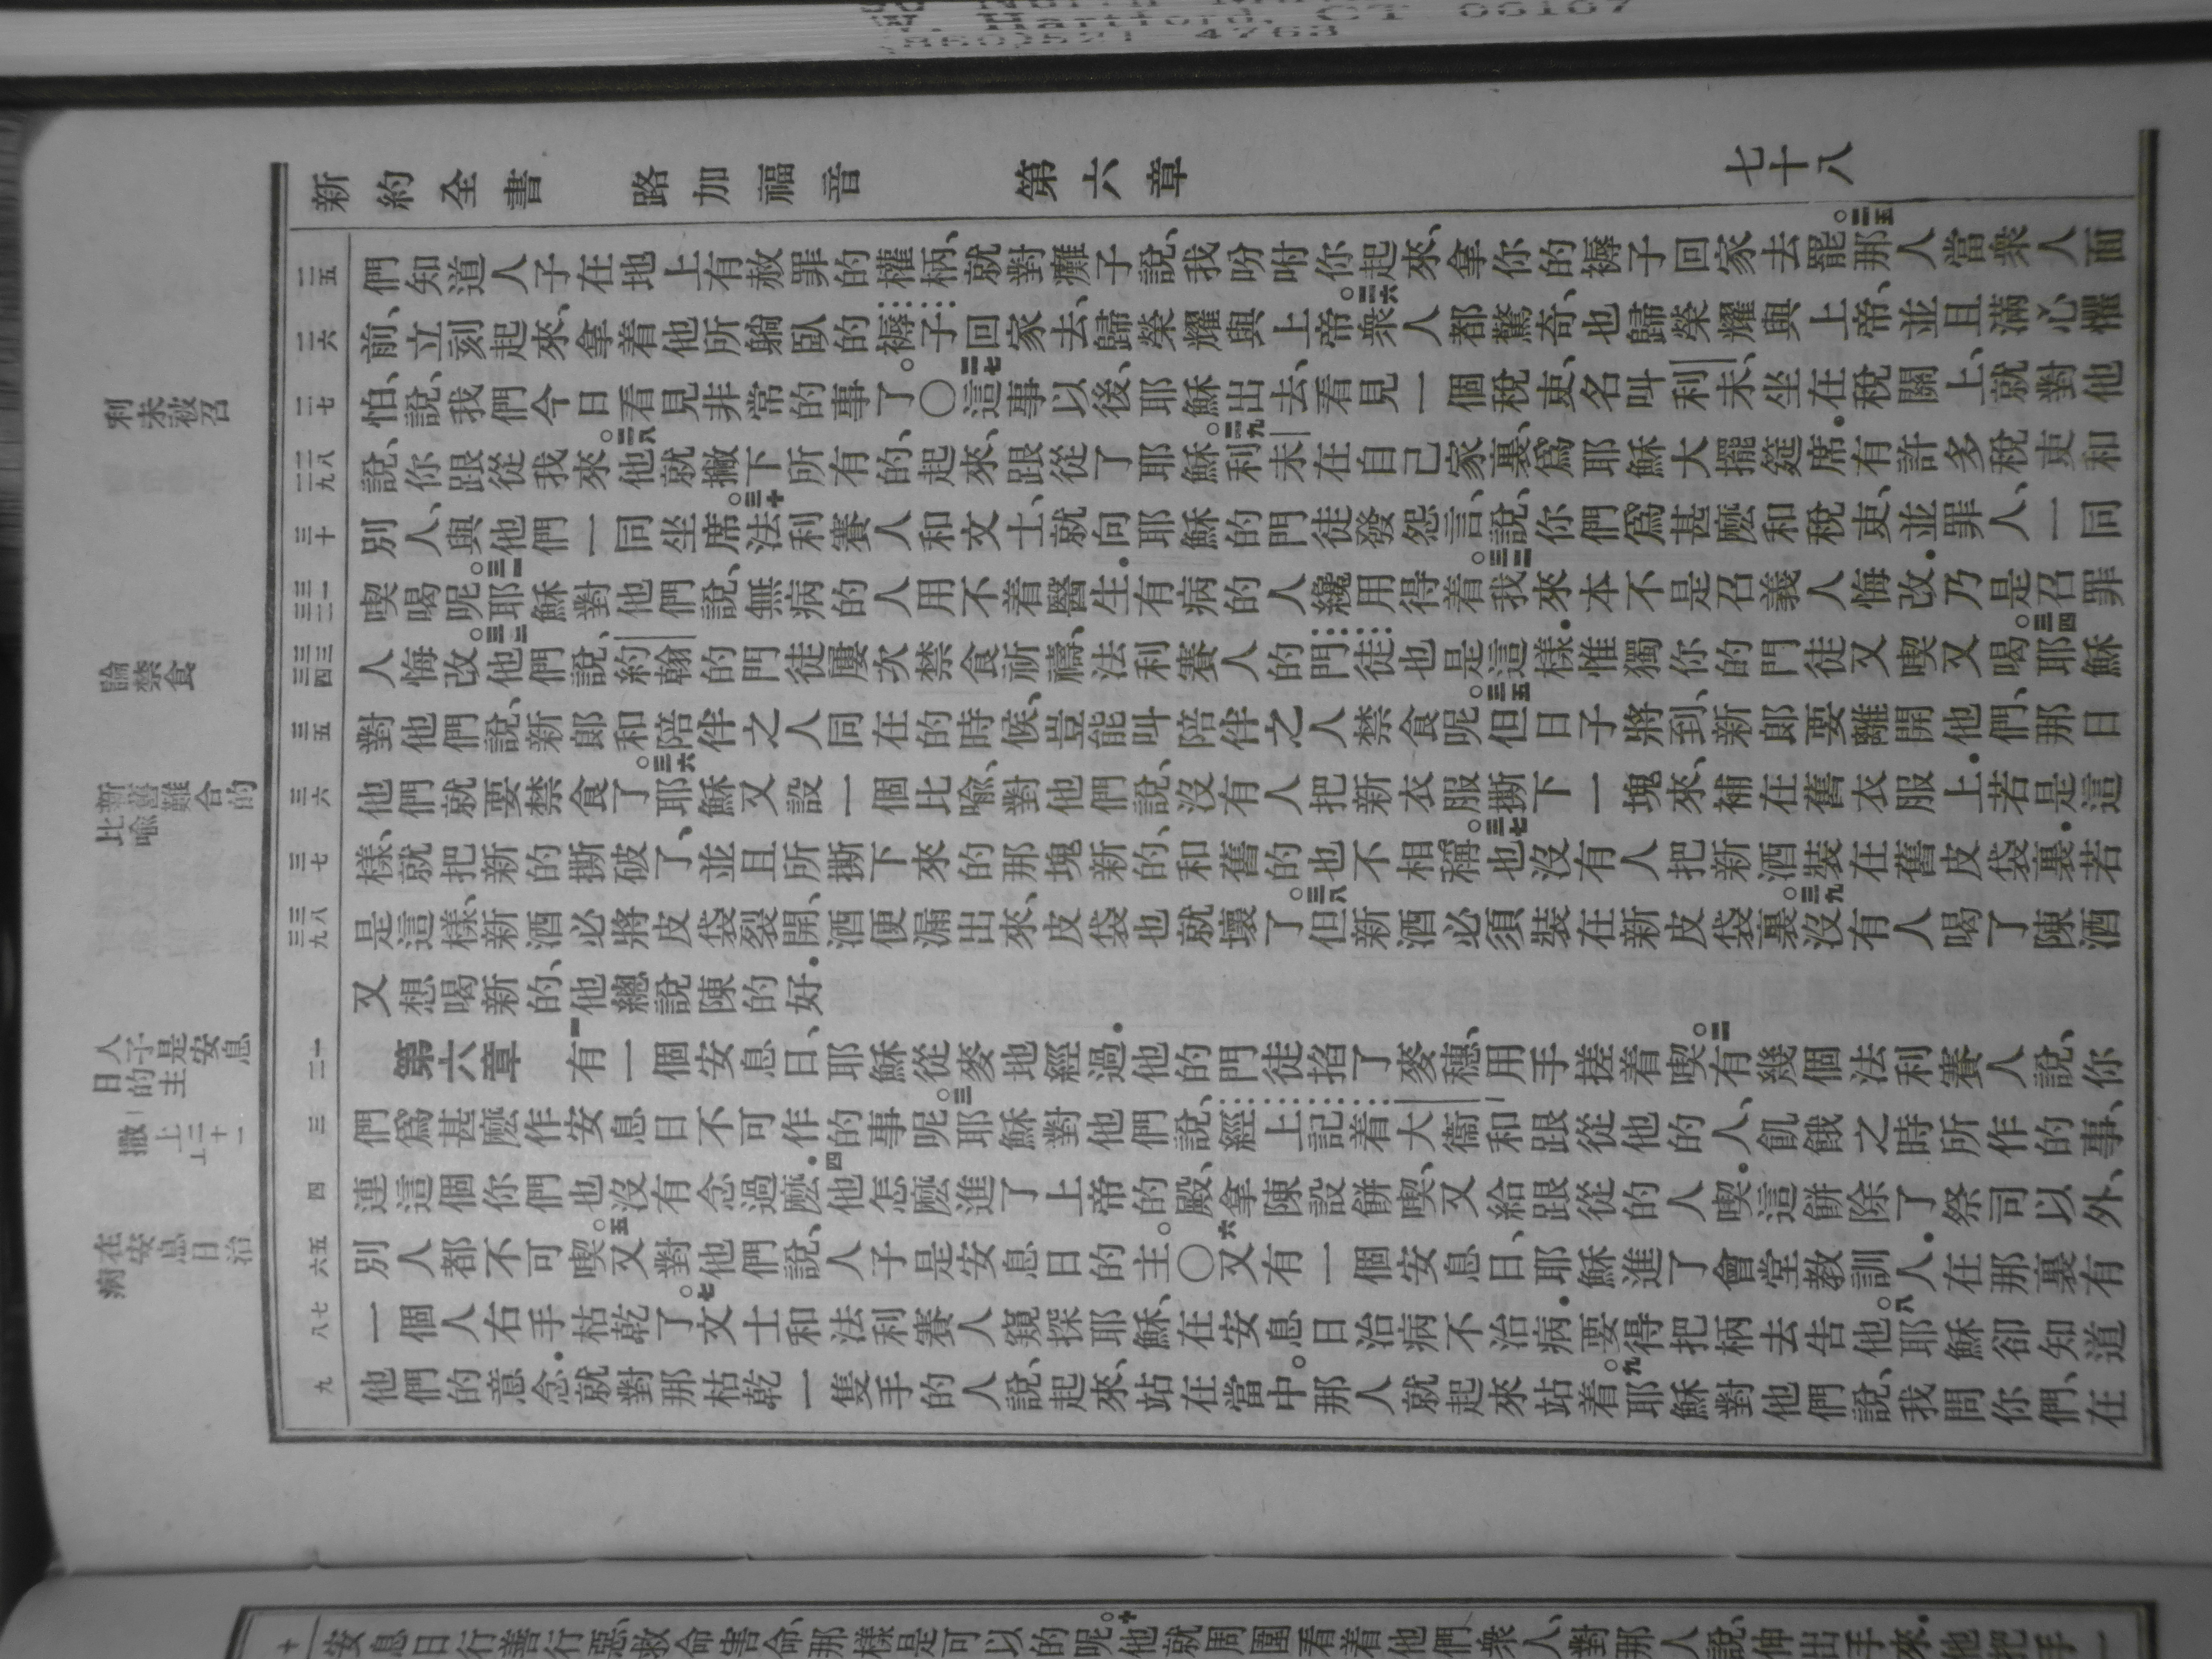 新約全書 路加福音 第六章 七十八
們知道人子在地上有赦罪的權柄、就對癱子說、我吩咐你起來、拿你的褥子回家去罷。二五那人當衆人面
前、立刻起來、拿着他所躺臥的褥子回家去、歸榮耀與上帝。二六衆人都驚奇、也歸榮耀與上帝、並且滿心懼
怕、說、我們今日看見非常的事了。〇二七這事以後、耶穌出去、看見一個稅吏、名叫利未、坐在稅關上、就對他
說、你跟從我來。二八他就撇下所有的、起來、跟從了耶穌。二九利未在自己家裏、爲耶穌大擺筵席．有許多稅吏和
別人、與他們一同坐席。三十法利賽人和文士、就向耶穌的門徒發怨言、說、你們爲甚麼和稅吏、並罪人、一同
喫喝呢。三一耶穌對他們說、無病的人用不着醫生．有病的人纔用得着。三二我來本不是召義人悔改．乃是召罪
人悔改。三三他們說、約翰的門徒屢次禁食祈禱、法利賽人的門徒也是這樣．惟獨你的門徒又喫又喝。三四耶穌
對他們說、新郎和陪伴之人同在的時候、豈能叫陪伴之人禁食呢。三五但日子將到、新郎要離開他們、那日
他們就要禁食了。三六耶穌又設一個比喻、對他們說、沒有人把新衣服撕下一塊來、補在舊衣服上．若是這
樣、就把新的撕破了、並且所撕下來的那塊新的、和舊的也不相稱。三七也沒有人把新酒裝在舊皮袋裏．若
是這樣、新酒必將皮袋裂開、酒便漏出來、皮袋也就壞了。三八但新酒必須裝在新皮袋裏。三九沒有人喝了陳酒
又想喝新的、他總說陳的好．
第六章 一有一個安息日、耶穌從麥地經過．他的門徒掐了麥穗、用手搓着喫。二有幾個法利賽人說、你
們爲甚麼作安息日不可作的事呢。三耶穌對他們說、經上記着大衞和跟從他的人、飢餓之時所作的事、
連這個你們也沒有念過麼．四他怎麼進了上帝的殿、拿陳設餅喫、又給跟從的人喫．這餅除了祭司以外、
別人都不可喫。五又對他們說、人子是安息日的主。〇六又有一個安息日、耶穌進了會堂教訓人．在那裏有
一個人右手枯乾了。七文士和法利賽人窺探耶穌、在安息日治病不治病．要得把柄去告他。八耶穌卻知道
他們的意念．就對那枯乾一隻手的人說、起來、站在當中。那人就起來站着。九耶穌對他們說、我問你們、在
利未被召
論禁食
新舊難合的比喻
人子是安息日的主
撒上二十一
在安息日治病
二五
二六
二七
二八
二九
三十
三一
三二
三三
三四
三五
三六
三七
三八
三九
一
二
三
四
五
六
七
八
九
十
安息日行善行惡、救命害命、那樣是可以的呢。十他就周圍看着他們衆人、對那人說、伸出手來．他把手一